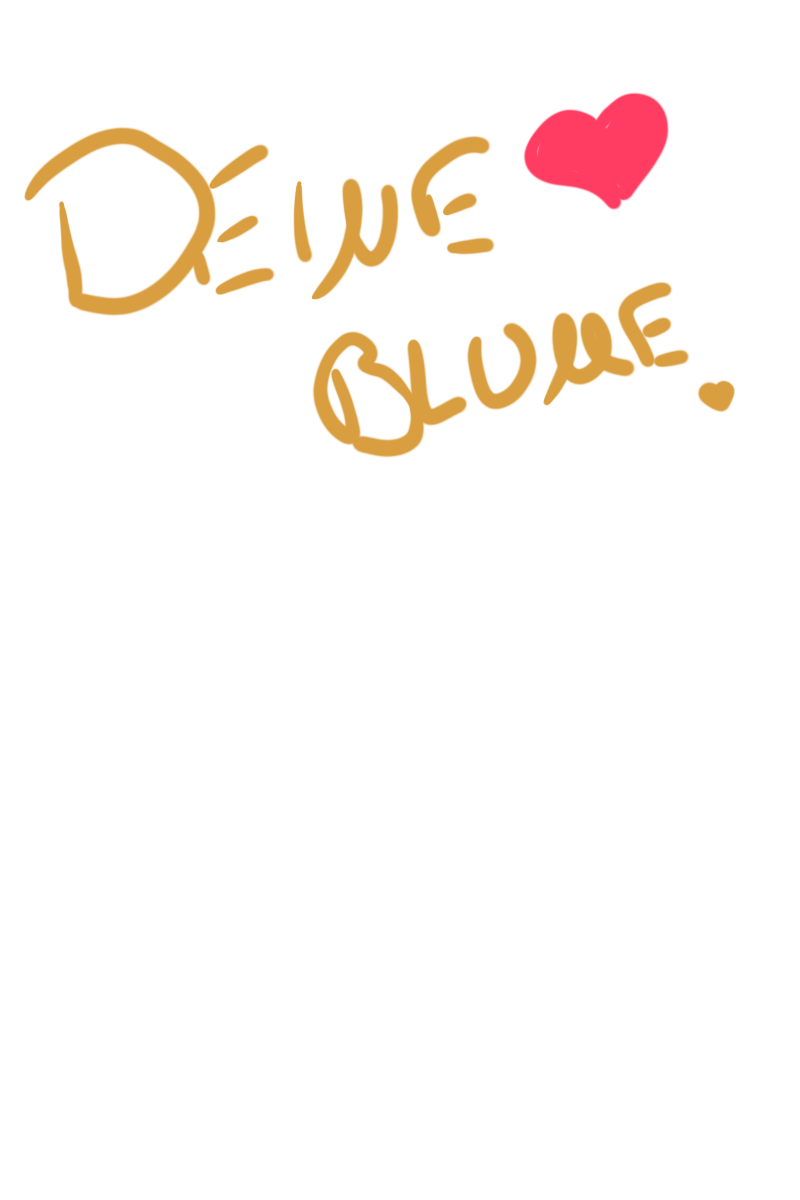 DEINE
BLUME.